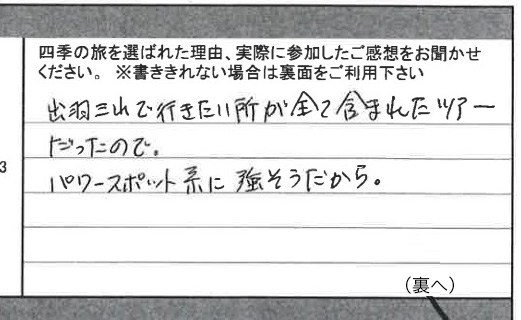 四季の旅を選ばれた理由、実際に参加したご感想をお聞かせ
ください。 ※書ききれない場合は裏面をご利用下さい
出羽三山で行きたい所が全て含まれたツアー
だったので。
パワースポット系に強そうだから。
3
(裏へ)